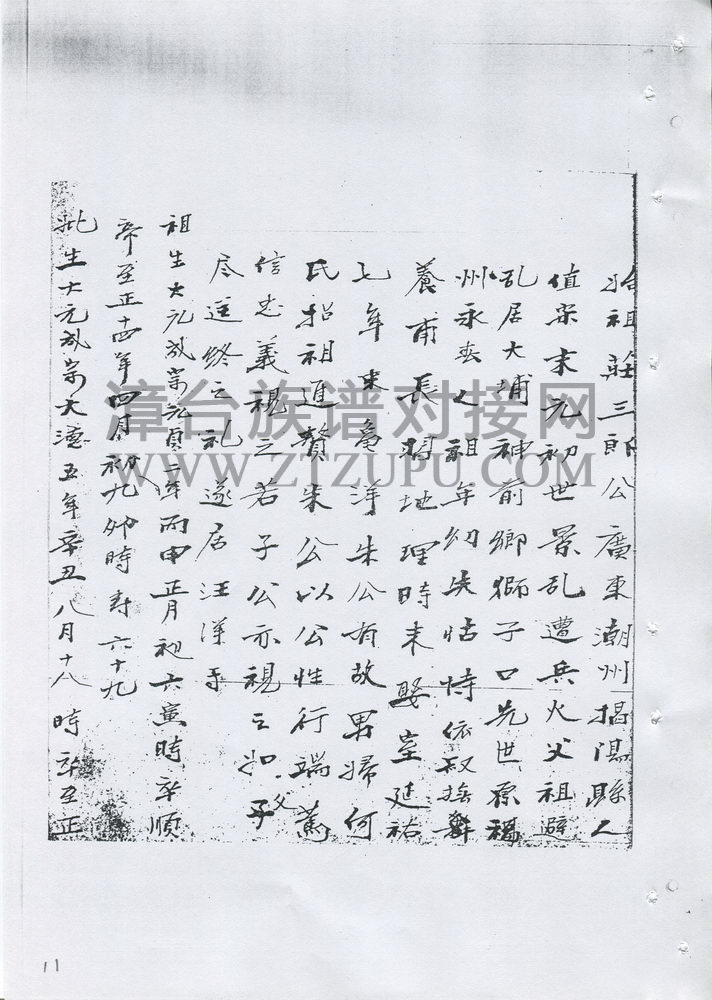 始祖莊三郎公廣東潮州揭陽縣人
值宋末元初世景乱遭兵火父祖避
乱居大埔神前鄉獅子口先世原福
州永春人祖年幼失怙恃依叔撫
養甫長習地理時未娶室延祐
七年來龜洋朱公有故男婦何
氏招祖進贅朱公以公性行端篤
信忠義視之若子公亦視之如父子
尽送終之礼遂居汪洋
祖生大元成宗元貞二年丙申正月初六寅時卒順
帝至正十四年四月初九卯時寿六十九
妣生大元成宗大德五年辛丑八月十八時卒至正
漳台族谱对接网
WWW.ZTZUPU.COM
11